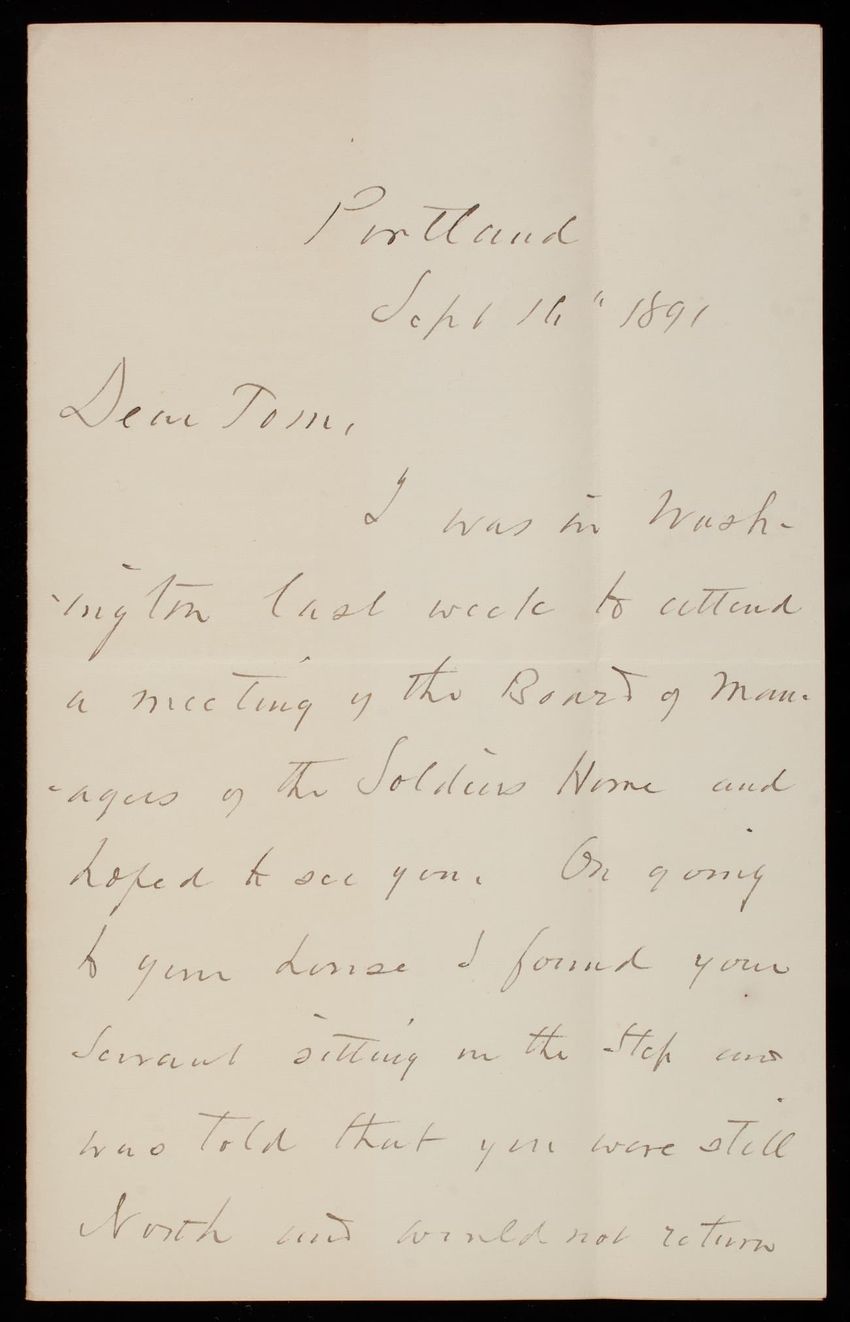 Portland
Sept 16" 1891
Dear Tom,
I was in Wash-
-ington last week to attend
a meeting of the Board of Man-
-agers of the Soldiers Home and
hoped to see you. On going
to your house I found your
Servant sitting on the Step and
was told that you were still
North and would not return